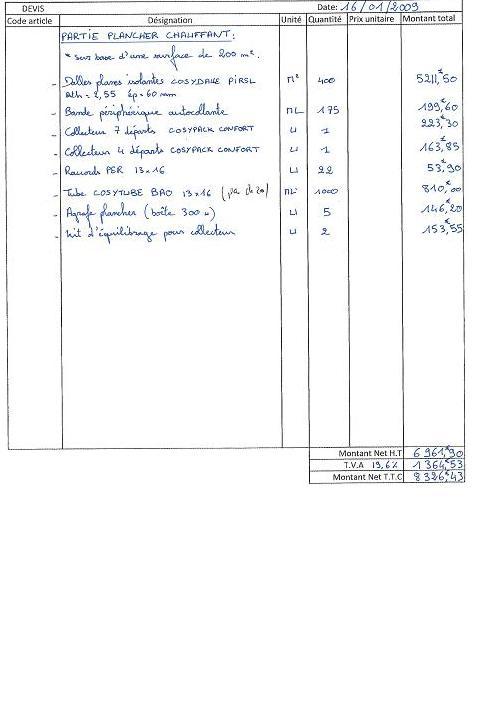 DEVIS Date: 16/01/2009
Code article Désignation Unité Quantité Prix unitaire Montant total
PARTIE PLANCHER CHAUFFANT:
* sur base d'une surface de 200 m².
- Dalles planes isolantes COSYDALLE PIRSL M² 400 5211,50
Rth = 2,55 ép = 60 mm
- Bande périphérique autocollante ML 175 199,60
- Collecteur 7 départs COSYPACK CONFORT U 1 223,30
- Collecteur 4 départs COSYPACK CONFORT U 1 163,85
- Raccords PER 13x16 U 22 53,90
- Tube COSYTUBE BAO 13x16 (pas de 20) ML 1000 810,00
- Agrafe plancher (boîte 300 u) U 5 146,20
- Kit d'équilibrage pour collecteur U 2 153,55
Montant Net H.T 6 961,90
T.V.A 19,6% 1 364,53
Montant Net T.T.C 8 326,43